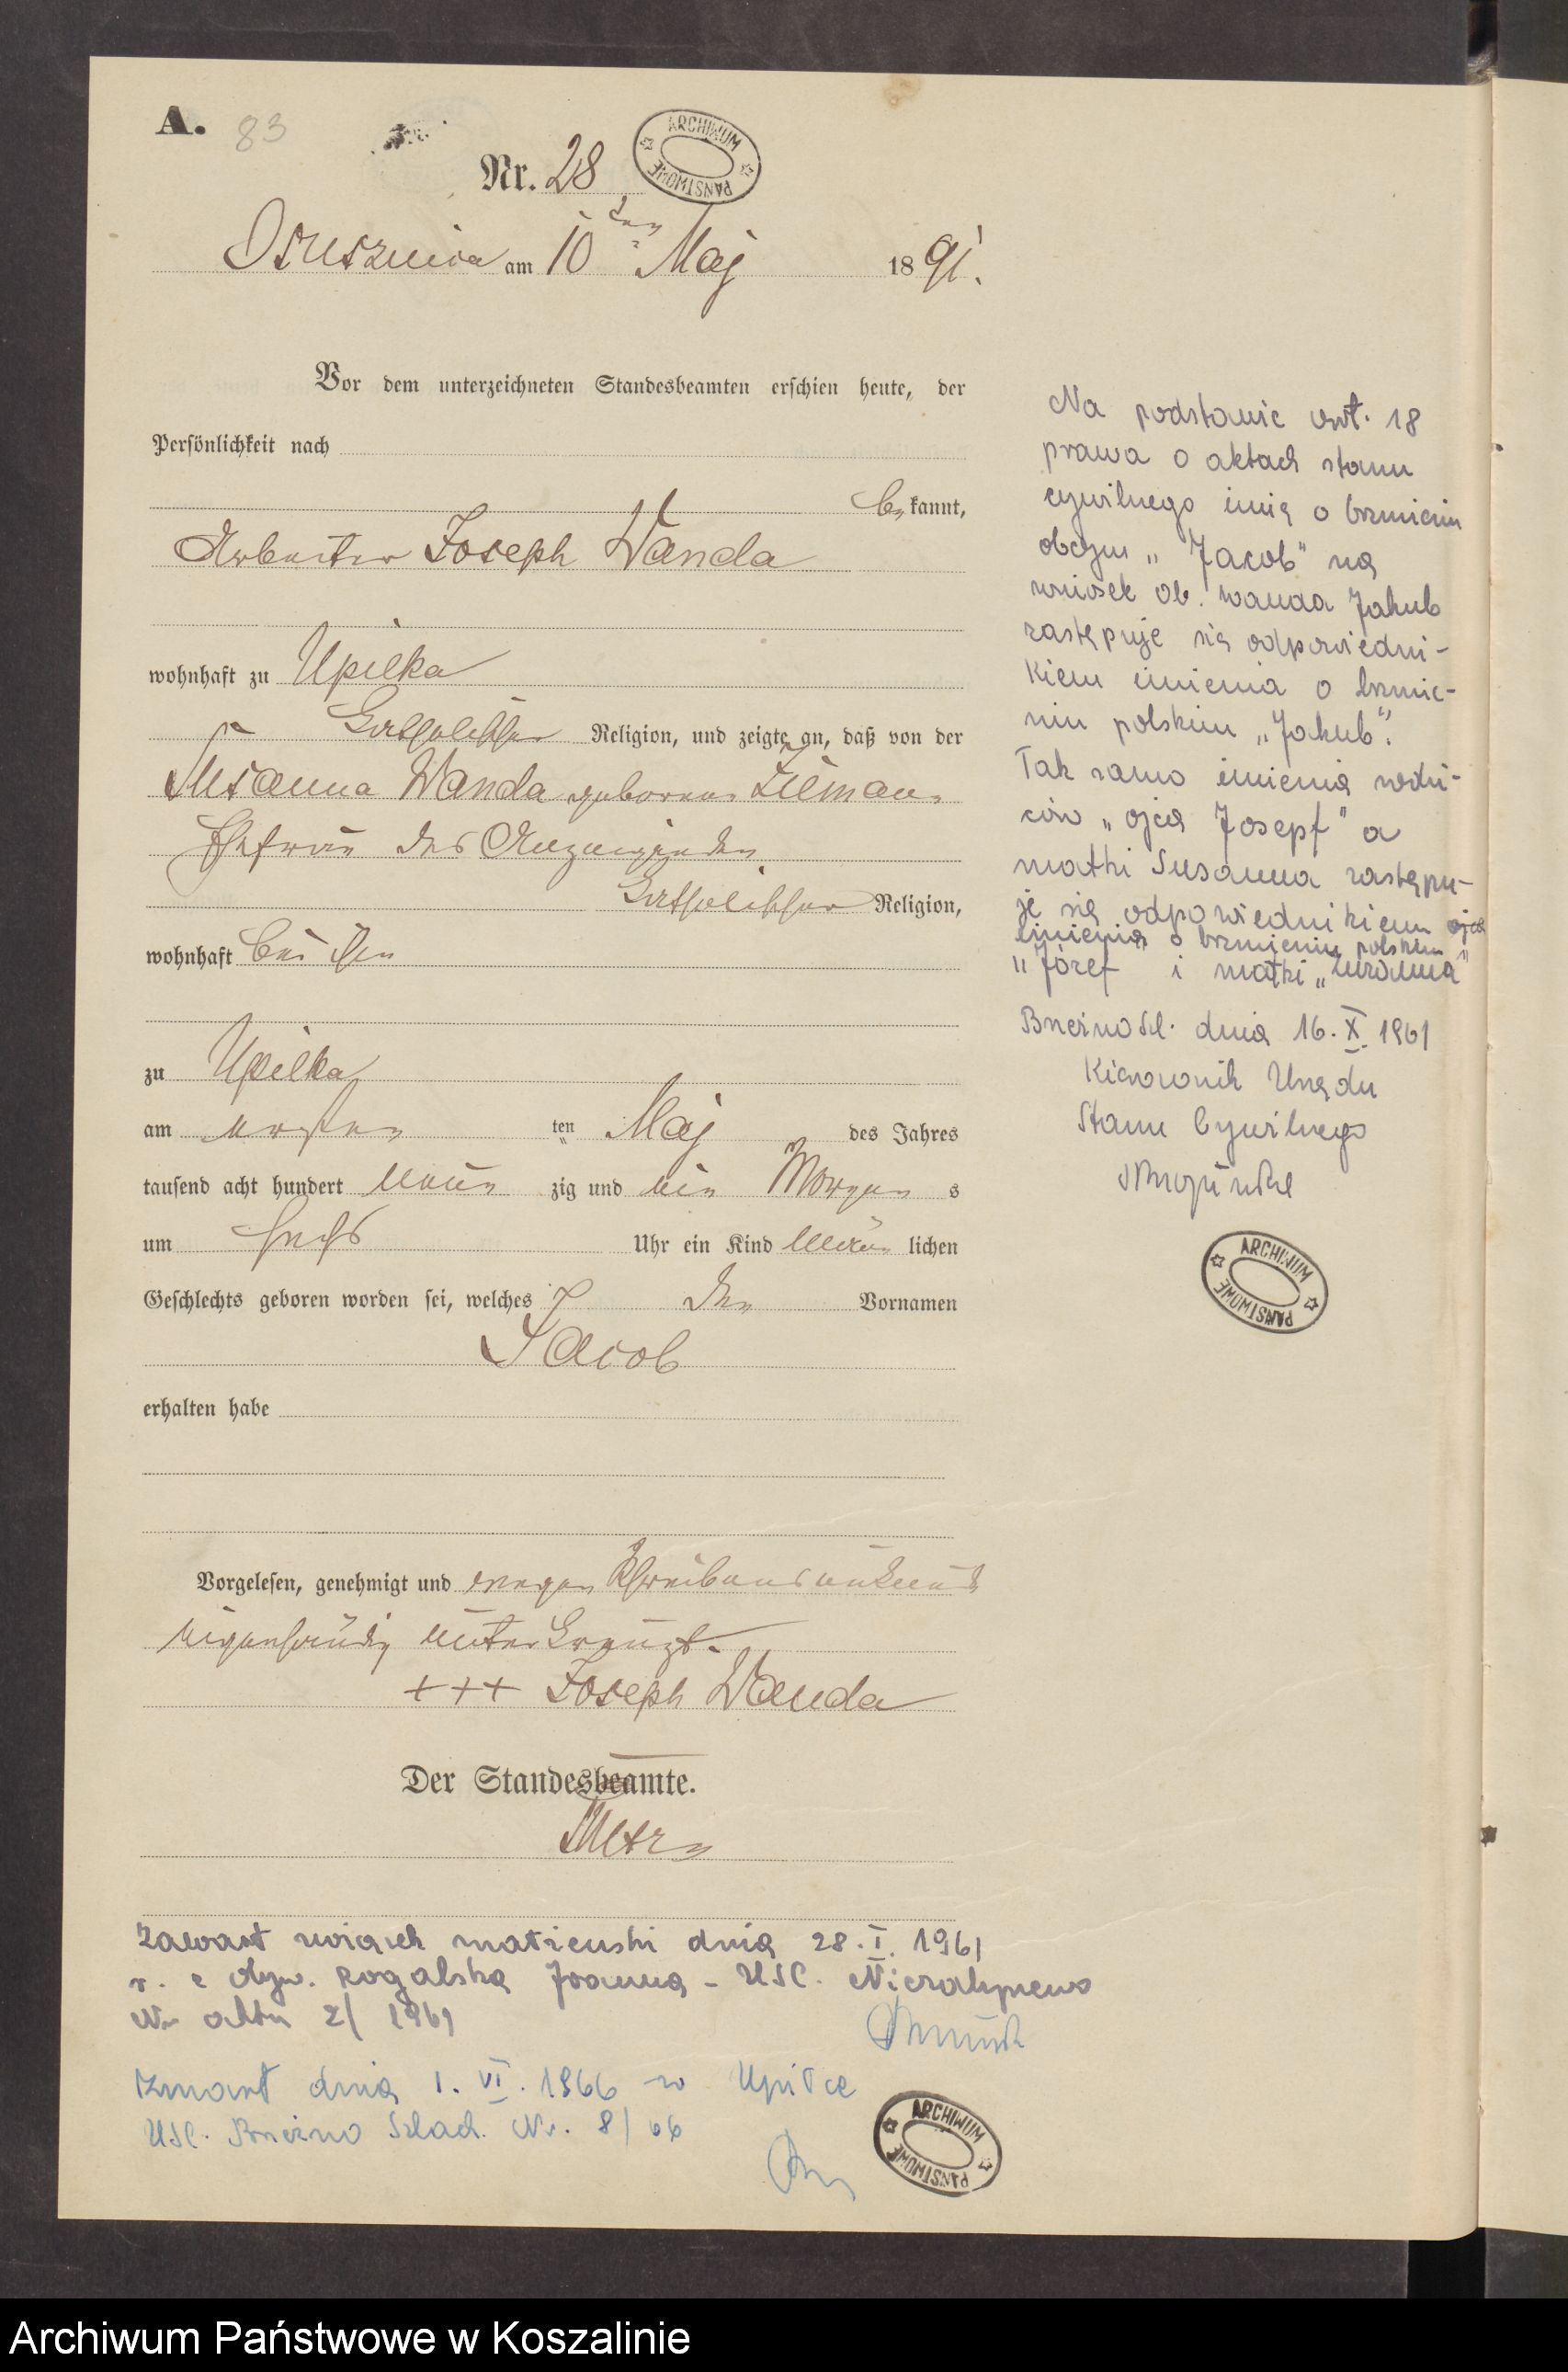 A. 83
Nr. 28
ARCHIWUM PAŃSTWOWE
Osusznica am 10ten Maj 1891.
Vor dem unterzeichneten Standesbeamten erschien heute, der
Persönlichkeit nach
be kannt,
Arbeiter Joseph Wanda
wohnhaft zu Upilka
katholischer Religion, und zeigte an, daß von der
Susanna Wanda geborene
Ehefrau des Anzeigenden
katholischer Religion,
wohnhaft bei ihm
zu Upilka
am ersten ten Maj des Jahres
tausend acht hundert neun zig und ein Morgen s
um sechs Uhr ein Kind männ lichen
Geschlechts geboren worden sei, welches den Vornamen
Jacob
erhalten habe
Vorgelesen, genehmigt und wegen Schreibensunkunde
eigenhändig unterkreuzt.
+++ Joseph Wanda
Der Standesbeamte.
Na podstawie art. 18
prawa o aktach stanu
cywilnego imię o brzmieniu
obcym „Jacob" na
wniosek ob. Wanda Jakub
zastępuje się odpowiedni-
kiem imienia o brzmie-
niu polskim „Jakub".
Tak samo imiona rodzi-
ców „ojca Josepf" a
matki Susanna zastępu-
je się odpowiednikiem ojca
imienia o brzmieniu polskim
„Józef" i matki „Zuzanna"
Brzeźno Szl. dnia 16. X. 1961
Kierownik Urzędu
Stanu Cywilnego
ARCHIWUM PAŃSTWOWE
Zawarł związek małżeński dnia 28. I. 1961
r. z obyw. Rogalską Joanną - USC. Niezabyszewo
Nr aktu 2/1961
Zmarł dnia 1. VI. 1966 w Upiłce
USC. Brzeźno Szlach. Nr. 8/66
ARCHIWUM PAŃSTWOWE
Archiwum Państwowe w Koszalinie